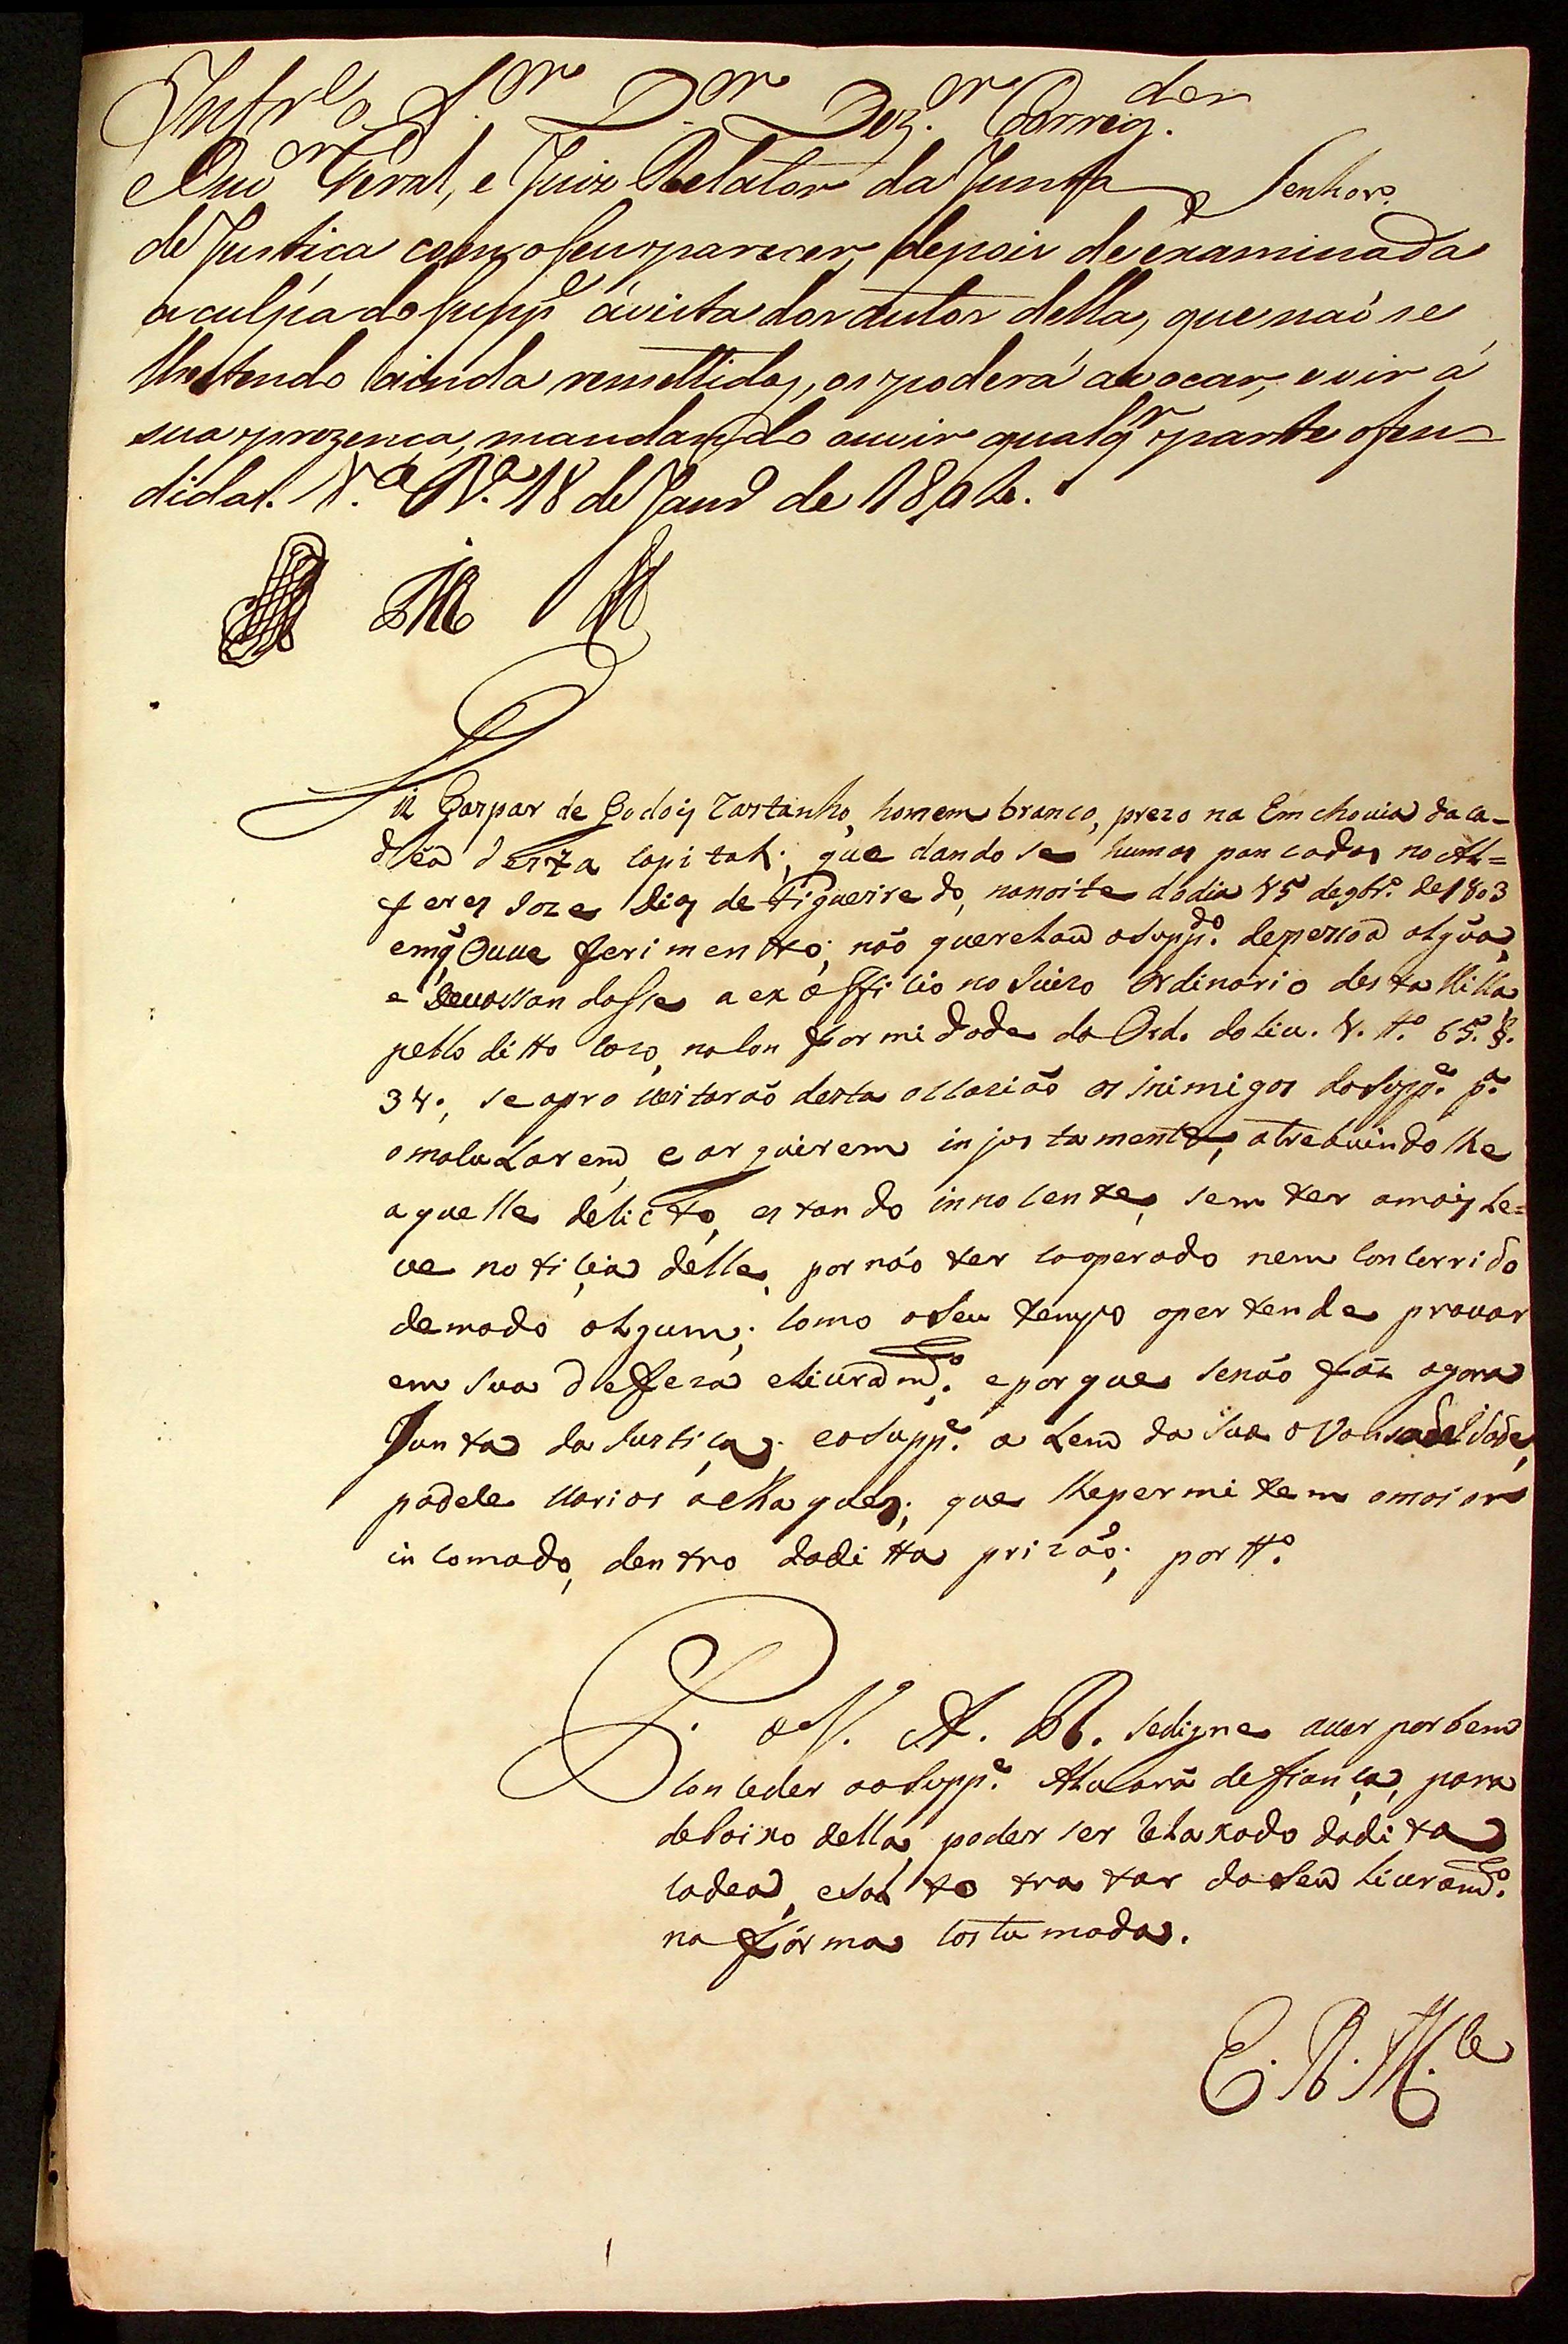 Informe o S.or D.or Dez.or Correg.dor
e Ouv.or Geral, e Juiz Relator da Junta
Senhor.
de Justiça com o seu parecer, depois de examinada
a culpa do Supp.e á vista dos autos della, que naõ se
lhe tendo ainda remettidos, os poderá avocar, e vir á
sua prezença, mandando ouvir qualq.r parte ofen-
dida. V.a 18 de Janr.o de 180
Diz Gaspar de Godoiy Castanho, homem branco, prezo na Emchovia da ca-
déa desta Capital; que dando se humas pancadas no Al=
feres Joze Diz de Figueiredo, na noite do dia 15 de 9br.o de 1803
em q̃ Ouve ferimento; não querelou o Supp.do de pessoa algũa,
e devassandosse a ex officio no Juizo Ordinario desta Villa
pello ditto cazo, na Conformidade da Ord. do Liv. 1. tt.o 65. §.
31., se aproveitarão desta occasião os inimigos do Supp.e p.a
o macularem, e arguirem injustamente, atrebuindo lhe
aquelle delicto, estando innocente, sem ter amaiy le=
ve noticia delle, por não ter coperado nem concorrido
de modo algum; como a seu tempo apertende provar
em sua defeza e livram.to e porque senão fáz agora
Junta da Justiça; e o Supp.e a lem da sua
padece varios achaques; que lhe permitem o maior
in comodo, dentro da ditta prizão; por tt.o
P. a V. A. R. se digne aver por bem
conceder ao Supp.e Alvará de fiança, para
debaixo della, poder ser relaxado da dita
cadea, e solto tratar do seu livram.to
na fórma costumada.
E. R. M.ce